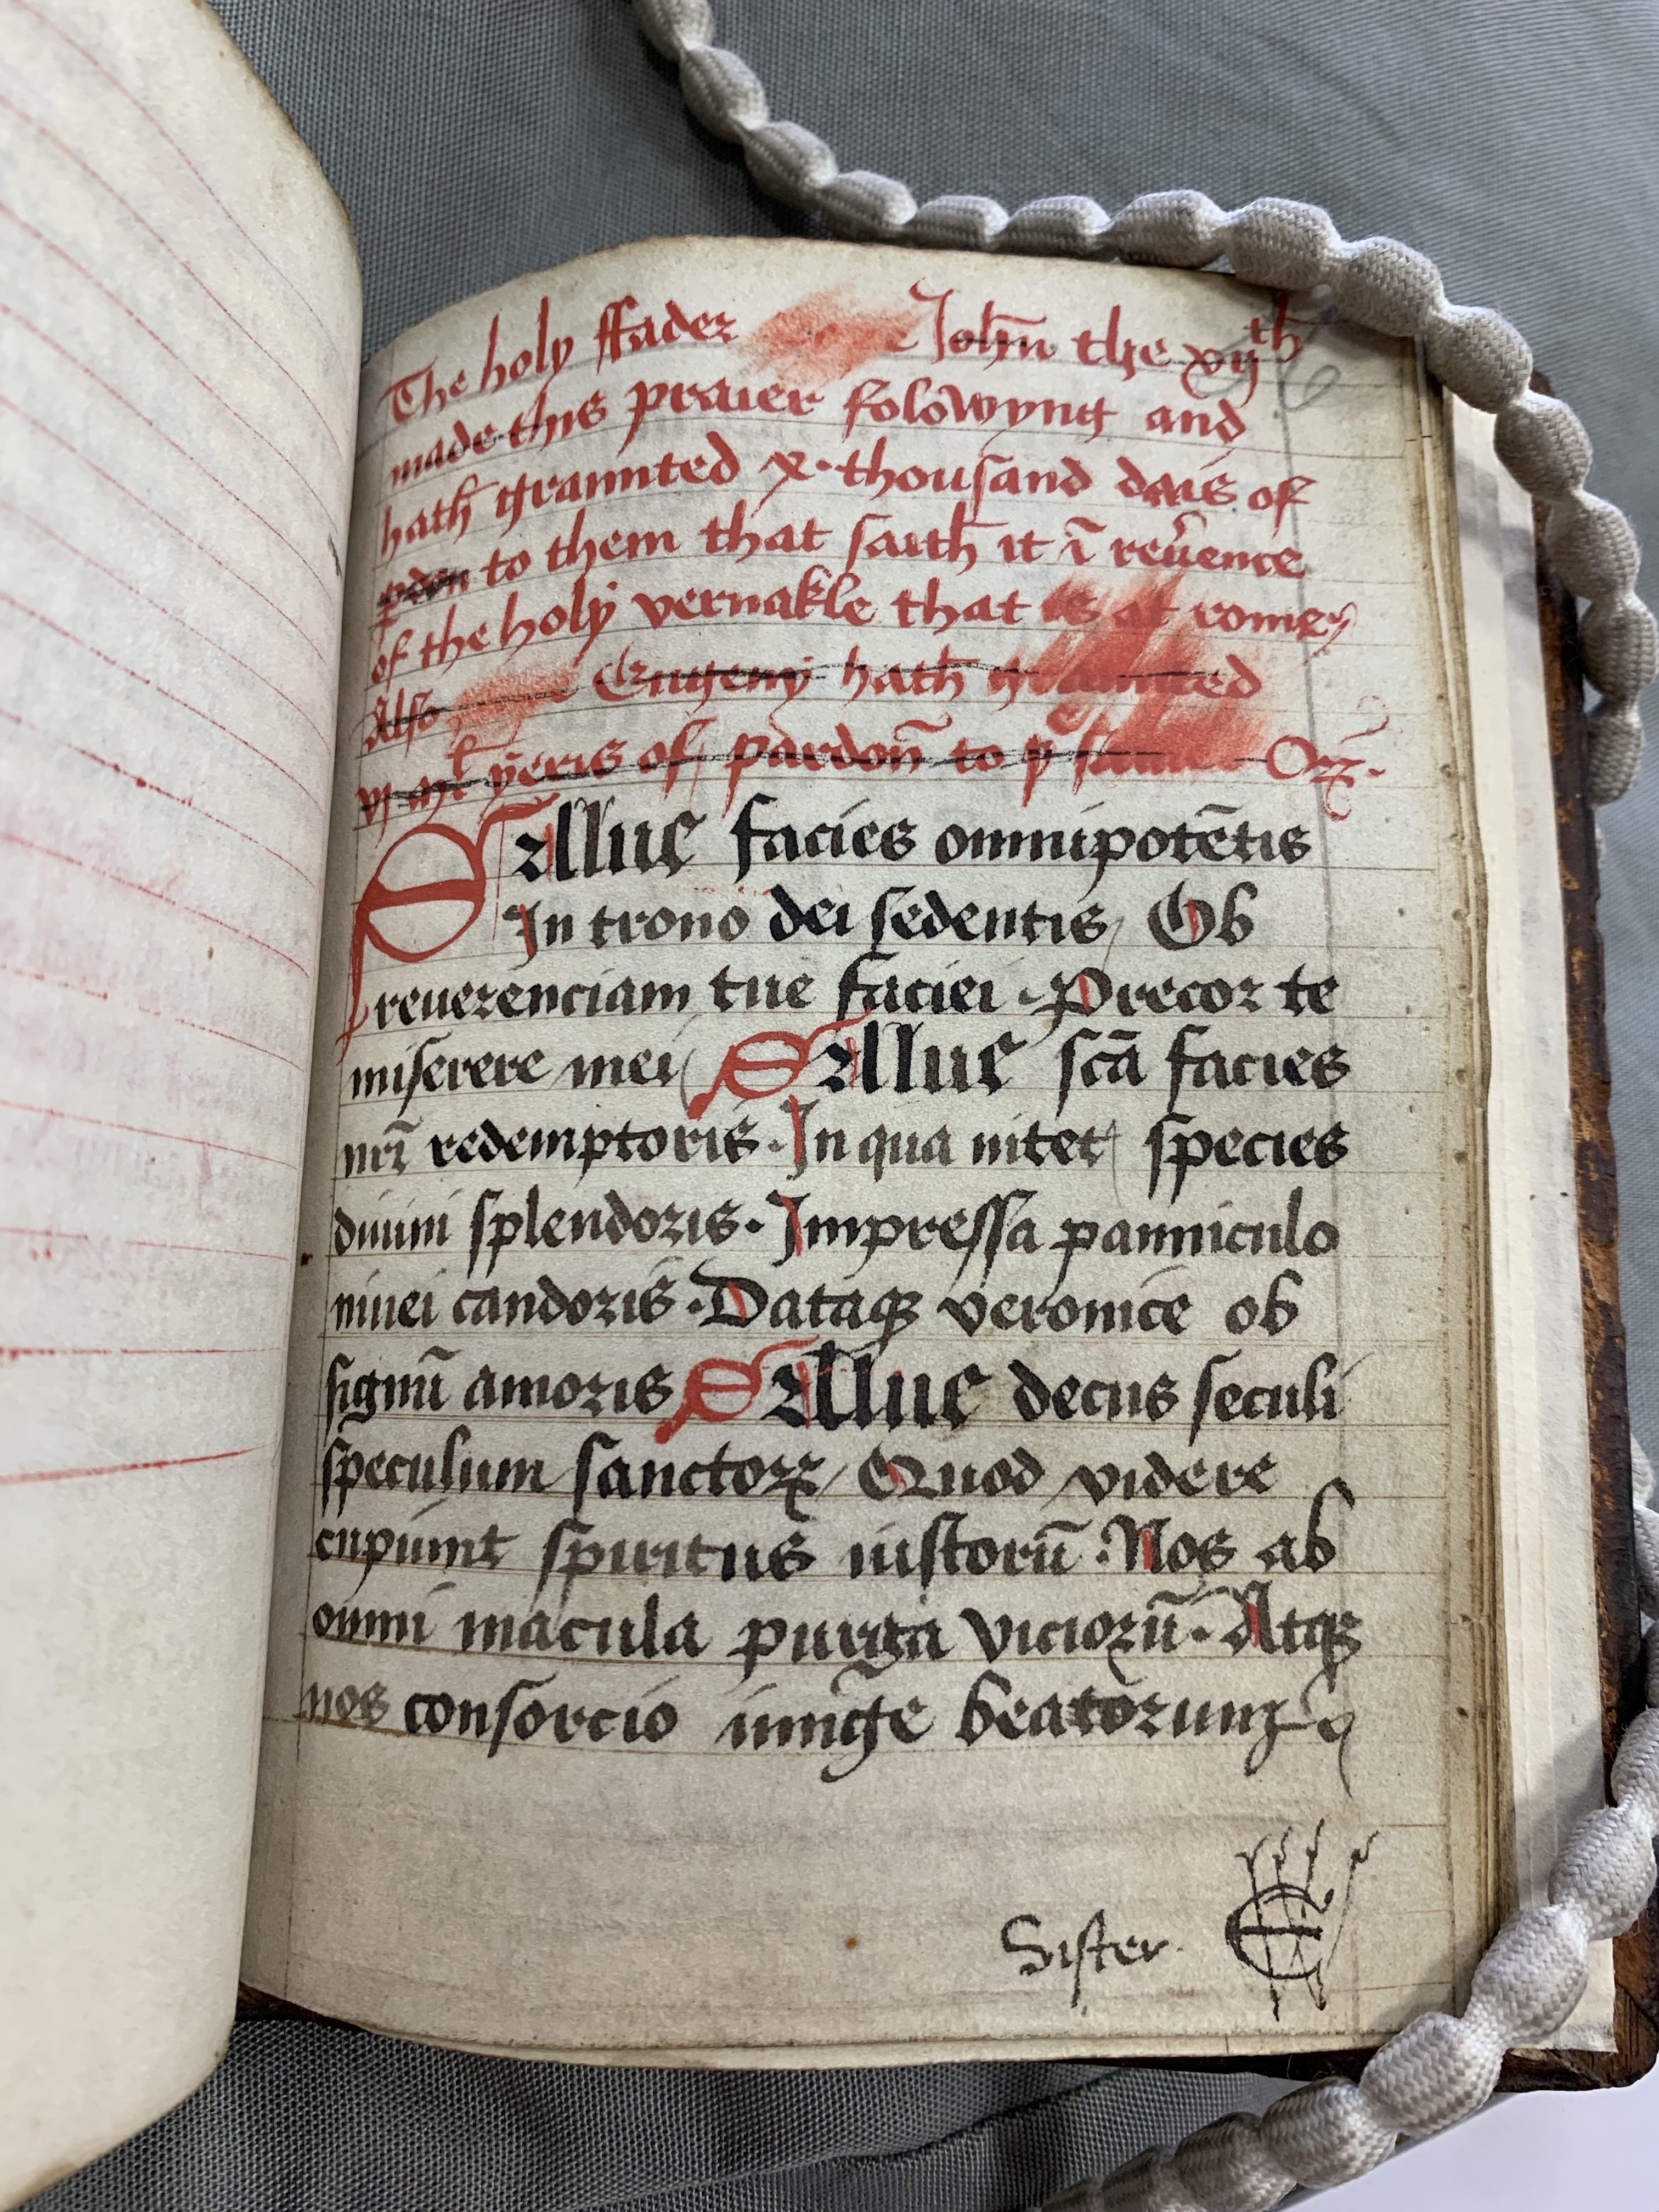 The holy ffader John the xijth
made this praier folowyng and
hath graunted x. thousand dais of
pdon to them that saith it ī reuence
of the holy vernakle that is at rome
Also Eugeny hath graunted
yeris of pardon to Or.
SAlue facies omnipotētis
In trono dei sedentis / Ob
reuerenciam tue faciei . Precor te
miserere mei / SAlue scā facies
nrī redemptoris . In qua nitet / species
diuini splendoris . Impressa panniculo
niuei candoris . Dataqꝫ veronice ob
signū amoris SAlue decus seculi
speculum sanctoꝝ / Quod videre
cupiunt spiritus iustorū . Nos ab
omni macula purga viciorū . Atqꝫ
nos consorcio iunge beatorum
Sister